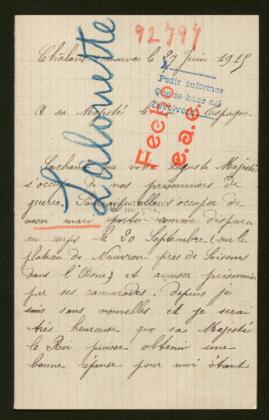 92797
Châlons s/ marne le 27 Juin 1915
Lalouette
Pedir informes
que se hace al
devolver
Fecho
e.a.c.
A sa Majesté le d'Espagne.
Sachant que votre auguste Majesté
s'occupe de nos prisonniers de
guerre, s'occuper de
mon mari porté comme disparu
au corps le 20 Septembre (sur le
plateau de Nouvron près de Soissons
dans l'Aisne) et aperçu prisonnier
par ses camarades. depuis je
suis sans nouvelles et je serai
très heureuse que sa Majesté
le Roi puisse obtenir une
bonne réponse pour moi étant